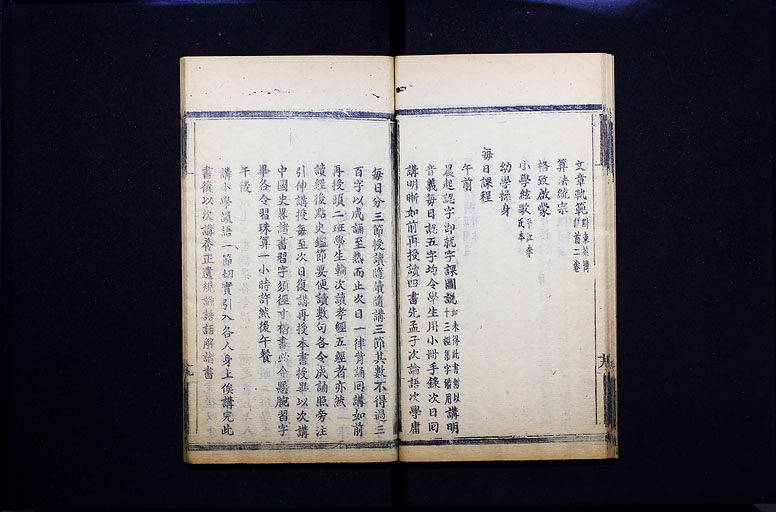 文章軌範
算法統宗
格致啟蒙
小學絃歌平江李氏本
幼學操身
每日課程
午前
晨起認字即就字課圖說如未得此書暫以十三經集字備用講明
音義每日認五字均令學生用小冊手錄次日回
講明晰如前再授讀四書先孟子次論語次學庸
每日分三節授讀隨讀隨講三節其數不得過三
百字以成誦至熟而止次日一律背誦回講如前
再授頭二班學生輪次讀孝經五經者亦然
讀經後點史鑑節要便讀數句各令成誦照旁注
引伸講授每至次日復講再授本書授畢以次講
中國史畧諸書習字須徑寸楷書必令懸腕習字
畢各令習珠算一小時許然後午餐
午後
講小學韻語一節切實引入各人身上俟講完此
書後以次講養正遺規論語話解諸書
九